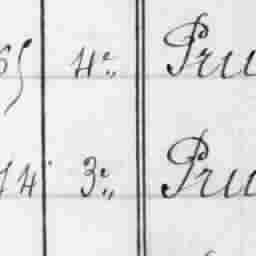 65 4:„ Pru
14 3:„ Pru